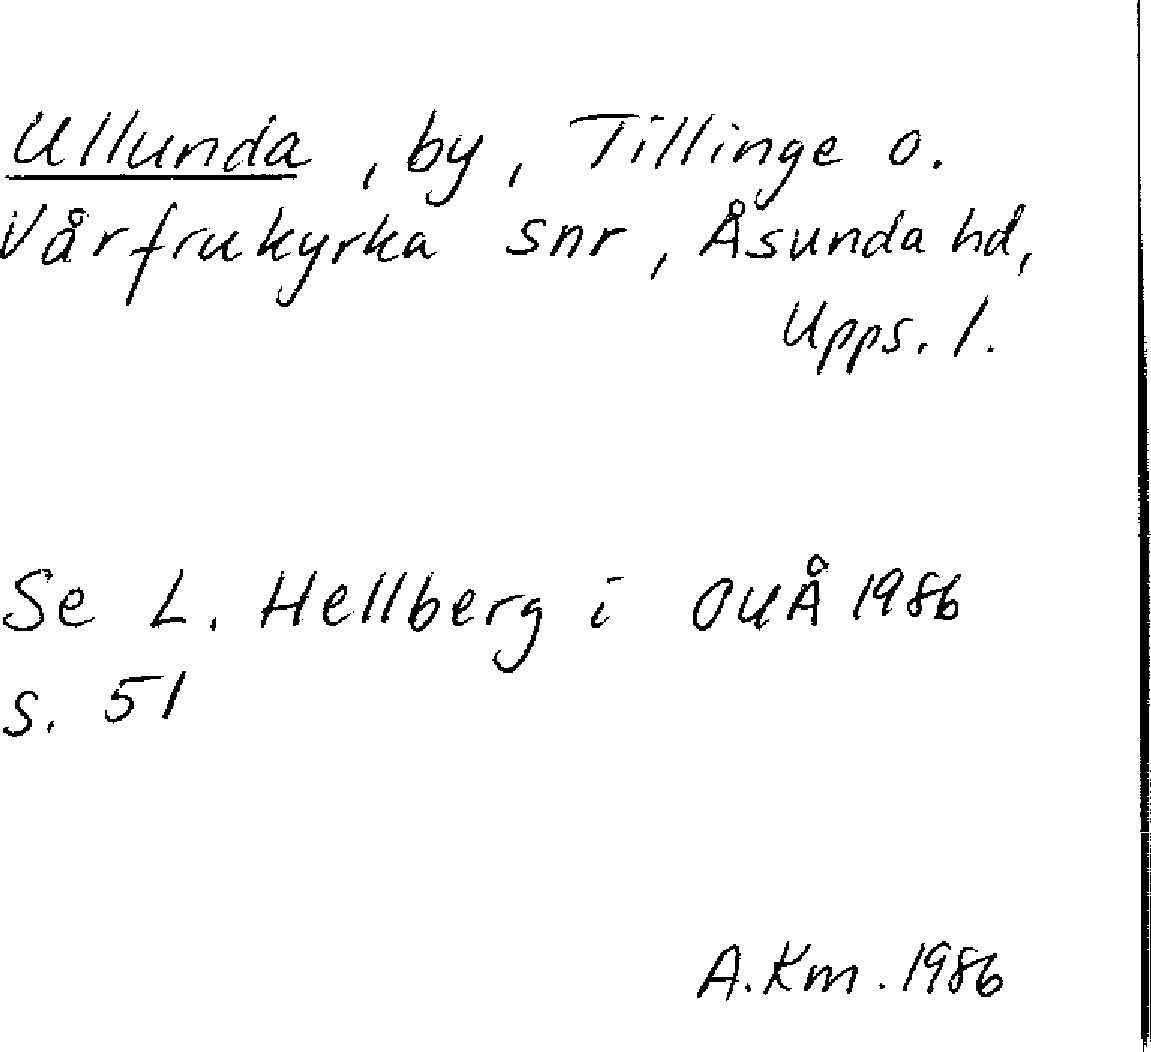 Ullunda, by, Tillinge o.
Vårfrukyrka snr, Åsunda hd,
Upps. l.
Se L. Hellberg i OUÅ 1986
s. 51
A.Km. 1986